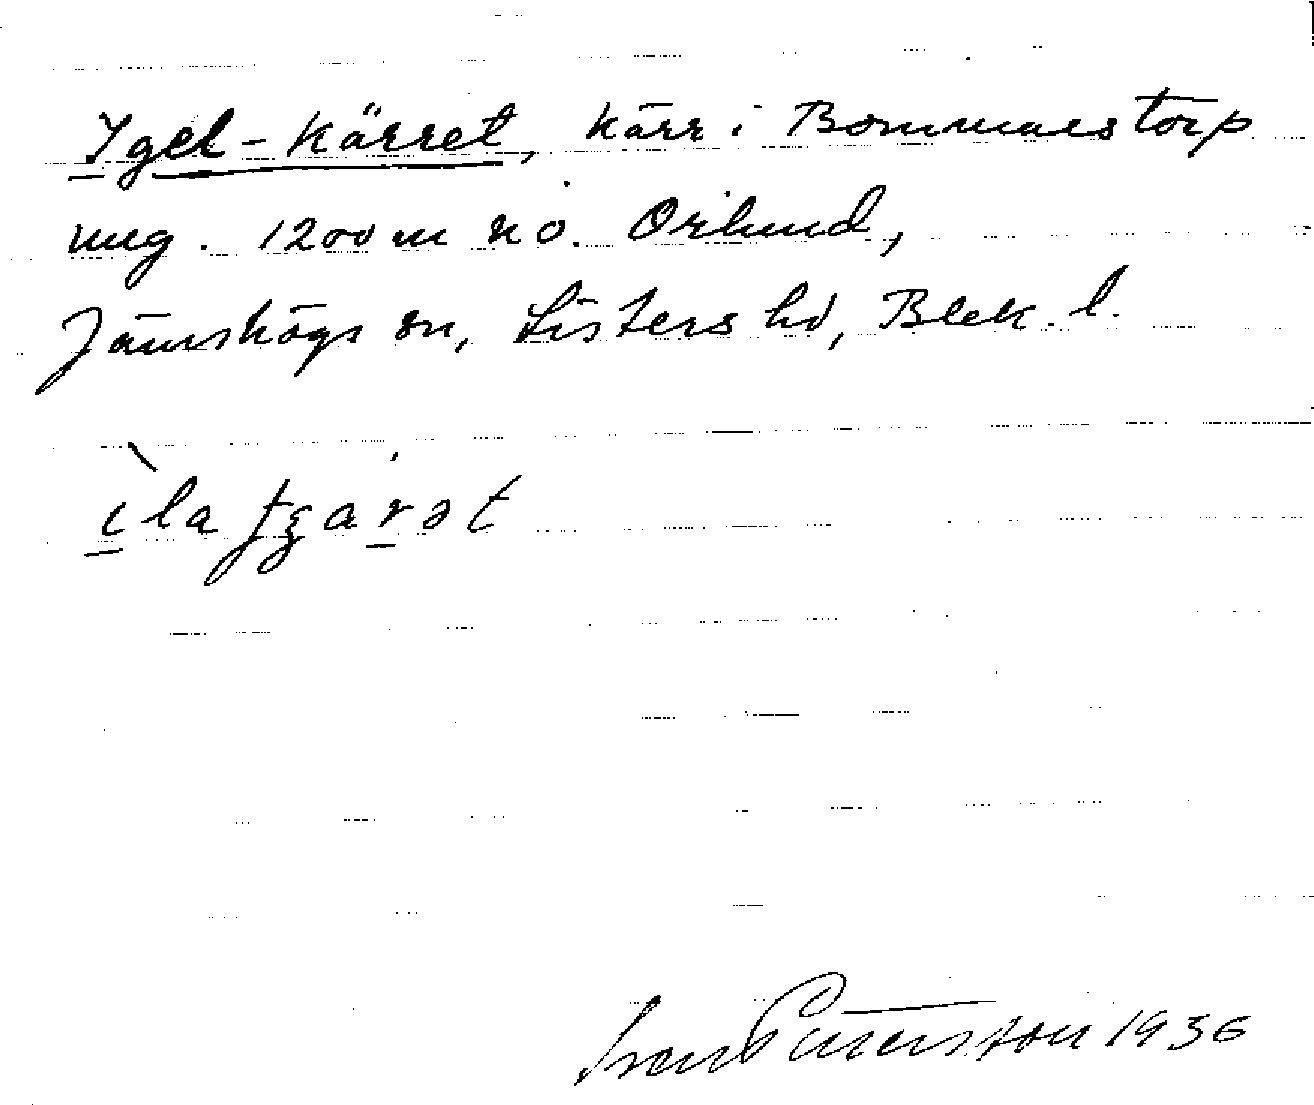 Igel-Kärret, kärr i Bommarstorp
ung. 1200 m nö. Orlund,
Jämshögs sn, Listers hd, Blek. l.
Pettersson 1936